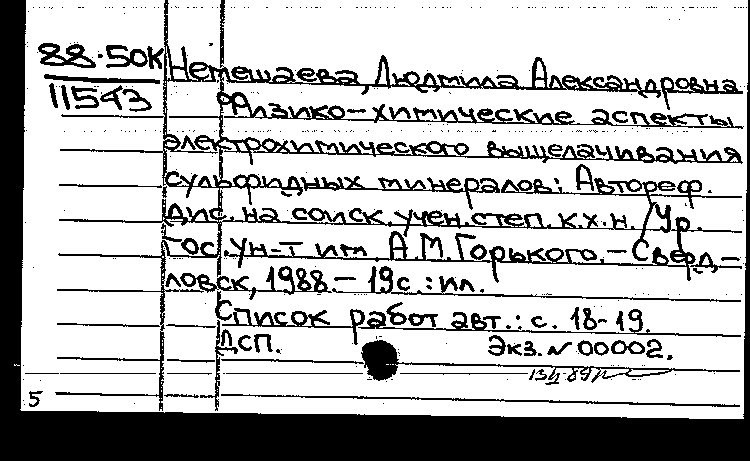 88·50К
11543
Немешаева, Людмила Александровна
Физико-химические аспекты
электрохимического выщелачивания
сульфидных минералов: Автореф.
дис. на соиск. учен. степ. к.х.н. /Ур.
гос. ун-т им. А.М.Горького.-Сверд-
ловск, 1988.- 19с.:ил.
Список работ авт.: с. 18-19.
ДСП. Экз.N 00002.
5